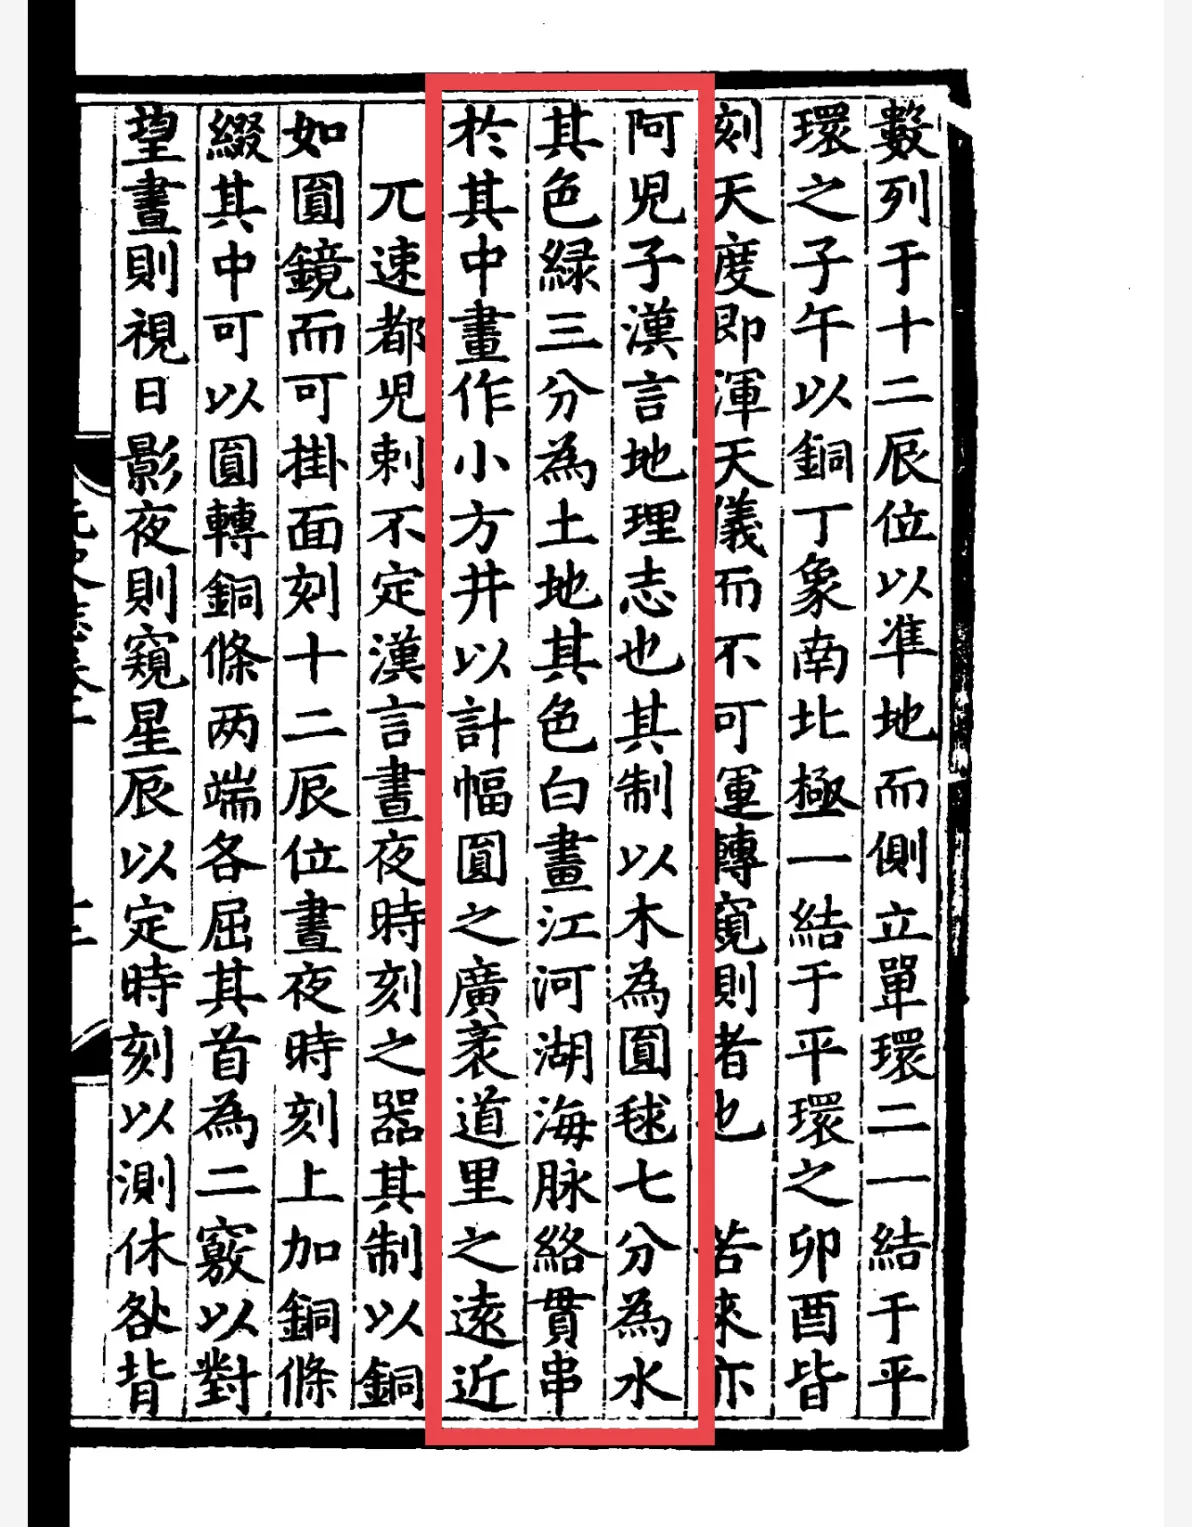 數列于十二辰位以準地而側立單環二一結于平
環之子午以銅丁象南北極一結于平環之卯酉皆
刻天度即渾天儀而不可運轉窺則者也　苦來亦
阿児子漢言地理志也其制以木為圎毬七分為水
其色緑三分為土地其色白畫江河湖海脉絡貫串
於其中畫作小方井以計幅圎之廣袤道里之逺近
兀速都児剌不定漢言晝夜時刻之器其制以銅
如圎鏡而可掛面刻十二辰位晝夜時刻上加銅條
綴其中可以圎轉銅條两端各屈其首為二竅以對
望晝則視日影夜則窺星辰以定時刻以測休咎背